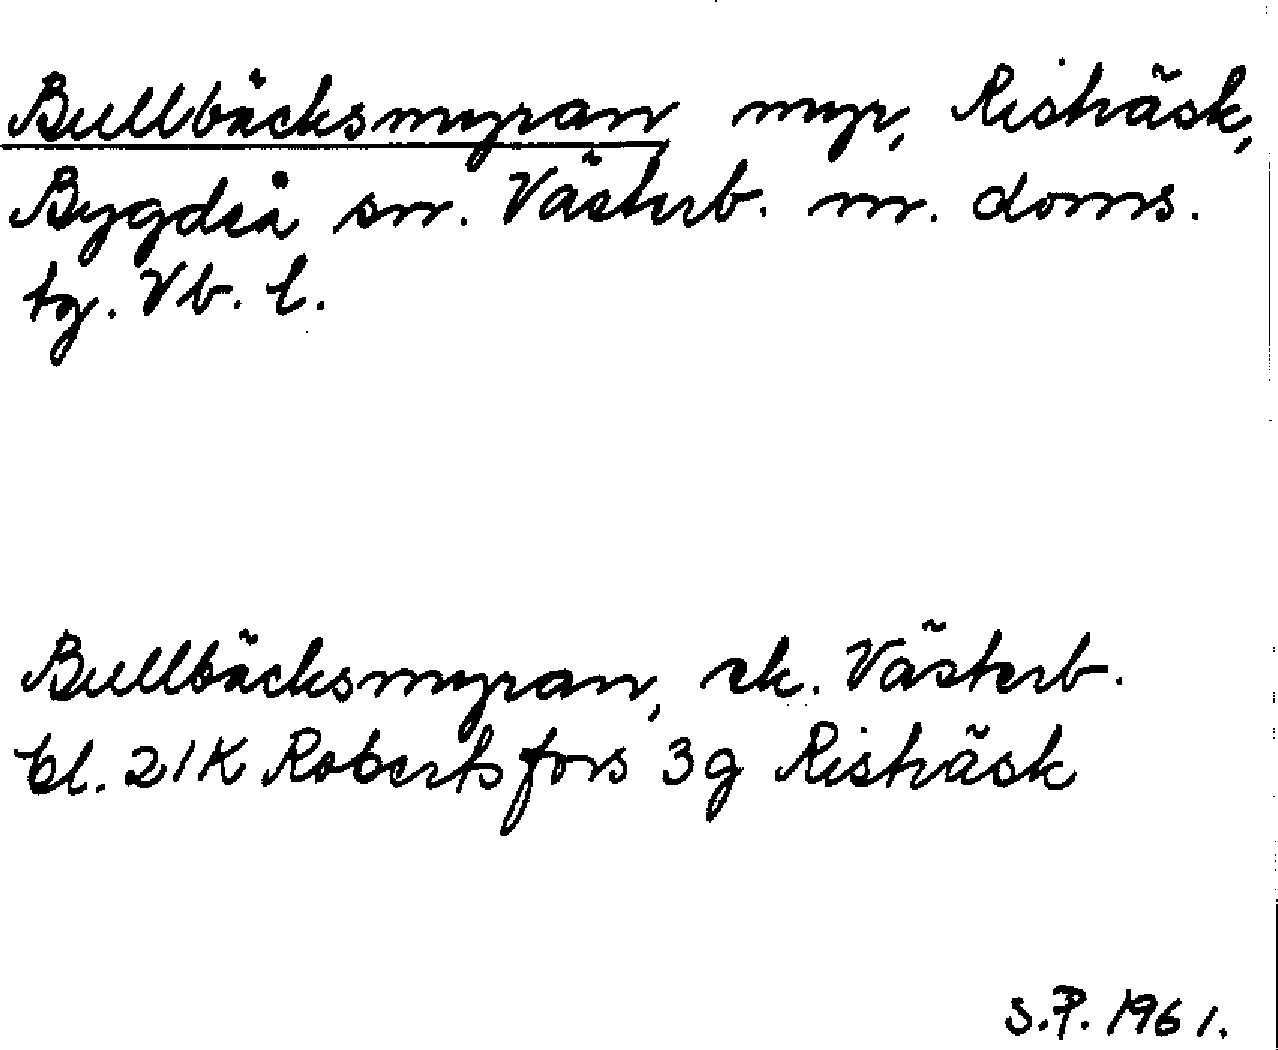 Bullbäcksmyran myr, Risträsk,
Bygdeå sn. Västerb. m. doms.
tg. Vb. l.
Bullbäcksmyran, ek. Västerb.
bl. 21K Robertsfors 3g Risträsk
S.P. 1961.